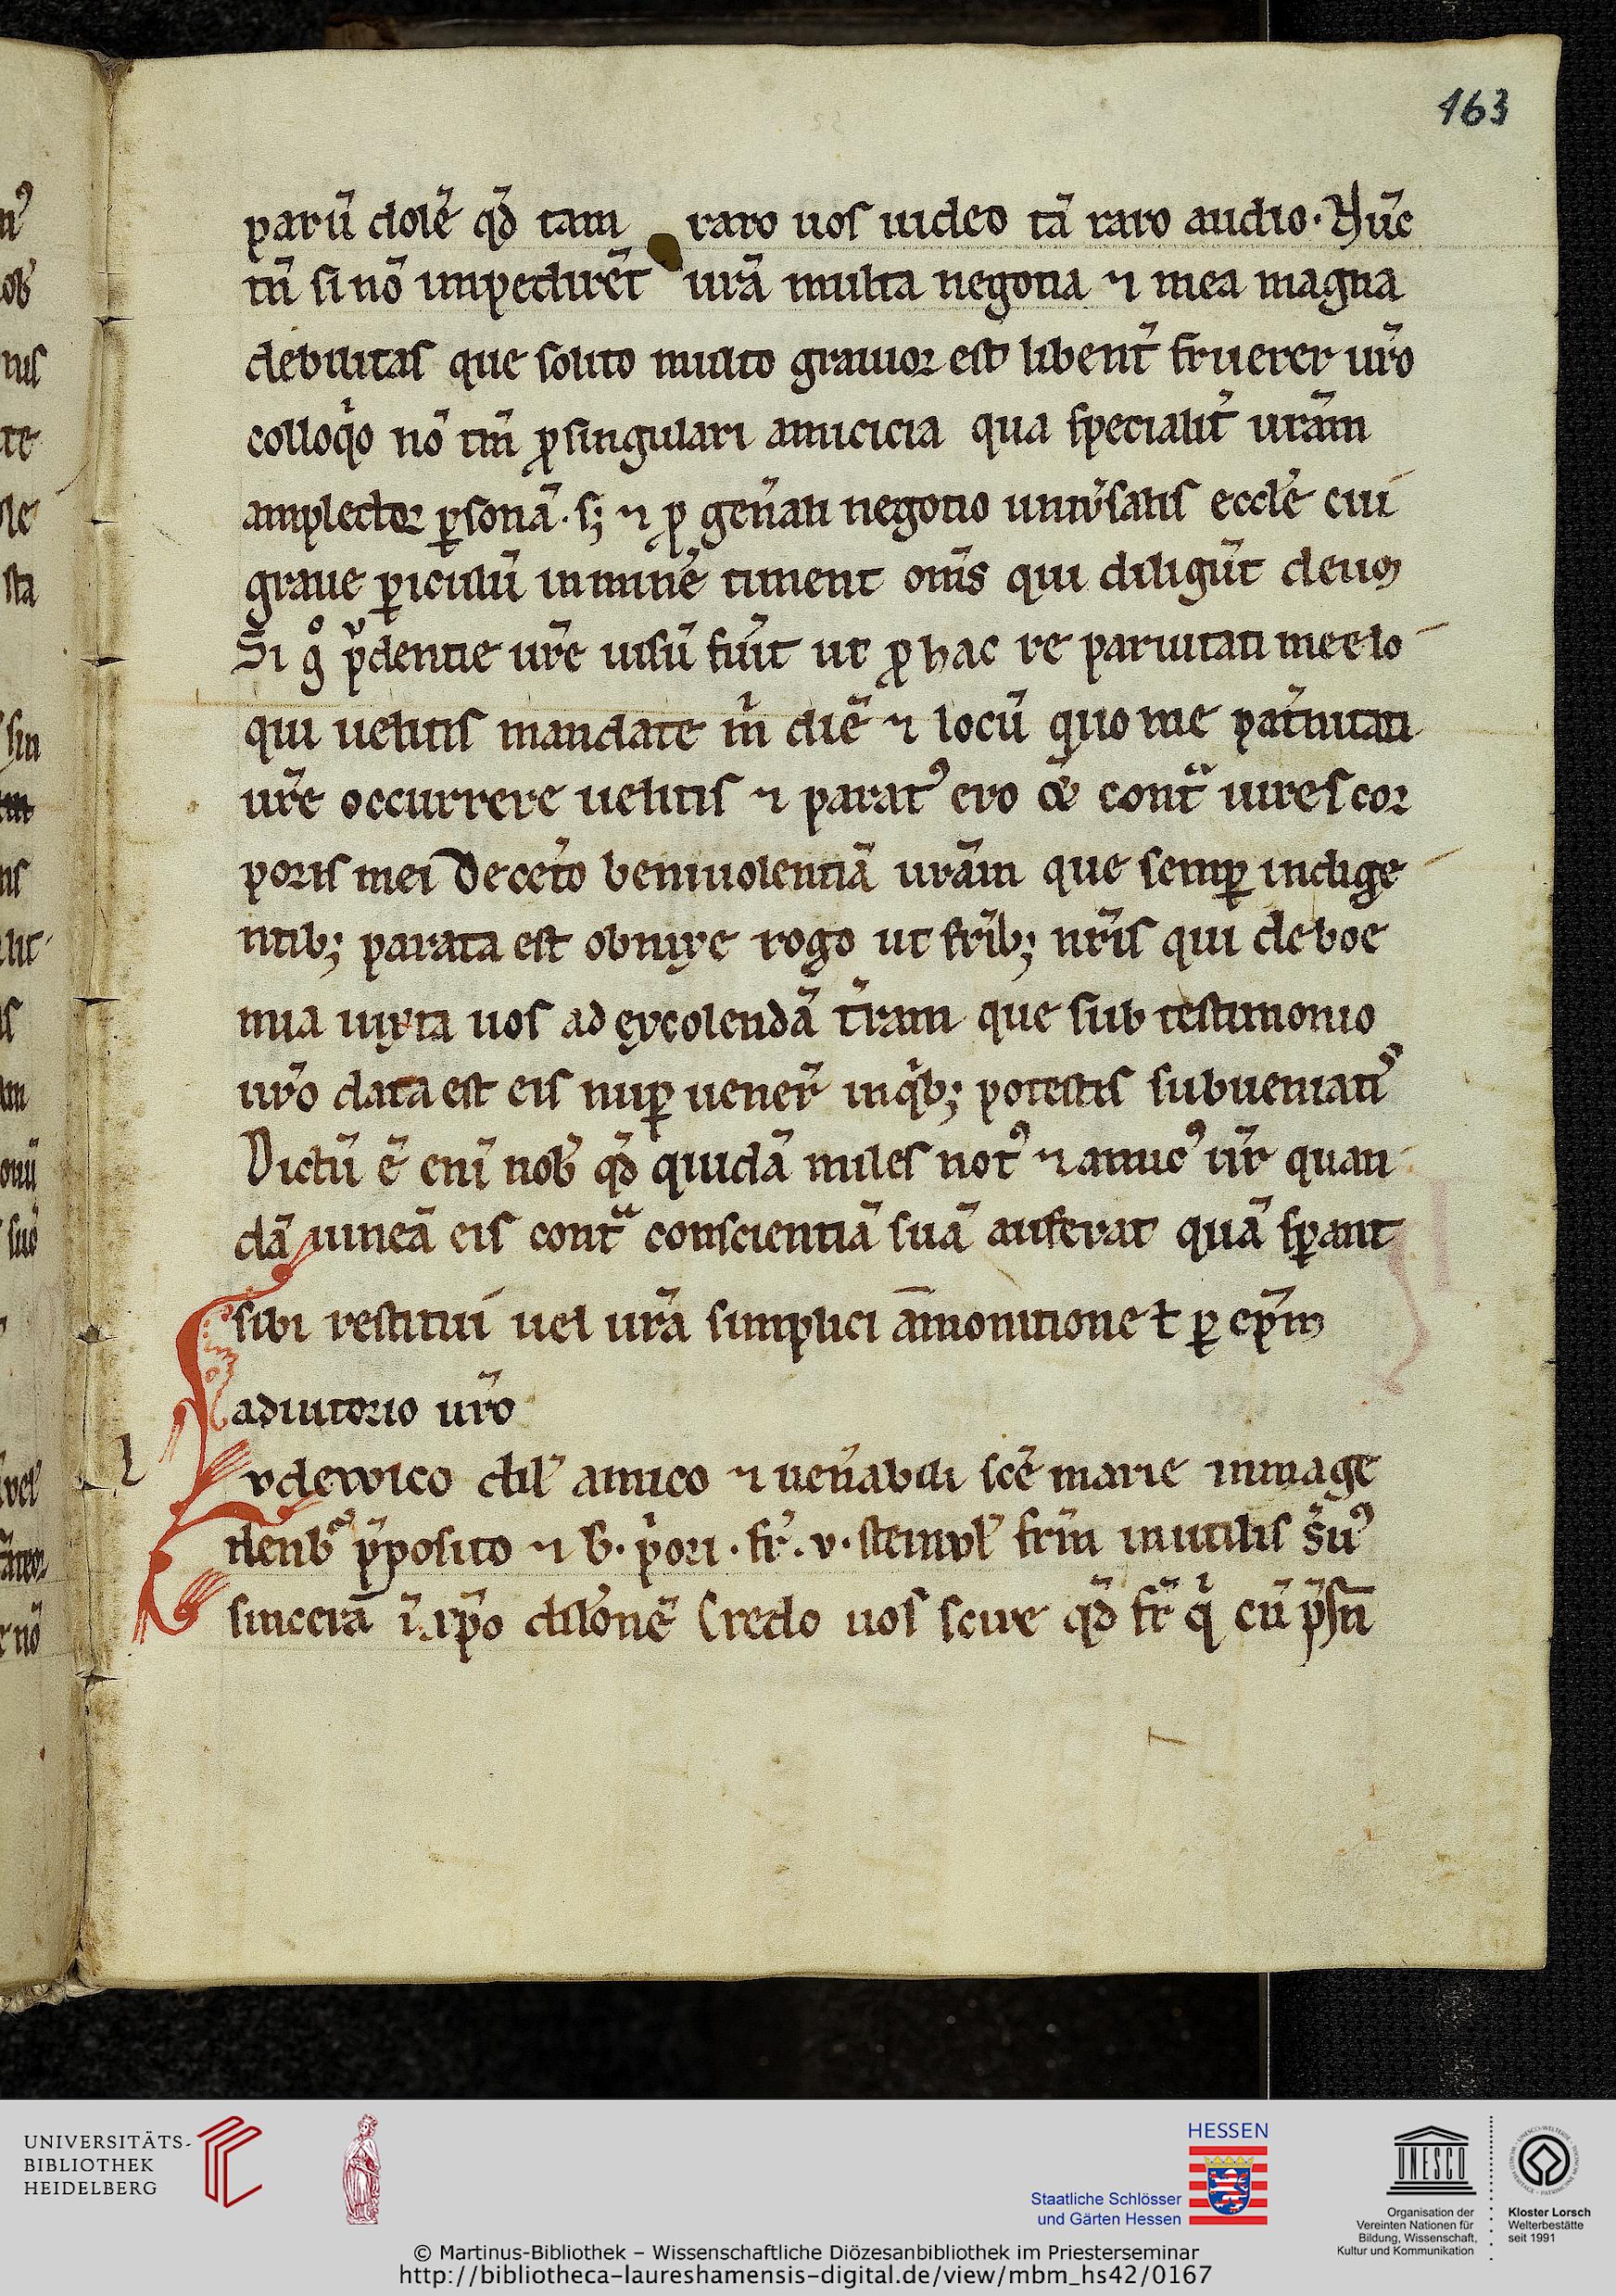 163
parū dolē qd̄ tam raro uos uideo tā raro audio. Nūc
tn̄ si nō impedirēt ur̄a multa negotia ⁊ mea magna
debilitas que solito multo grauior est libent̄ fruerer ur̄o
colloqⁱo nō tm̄ ꝓ singulari amicicia qua specialit̄ ur̄am
amplector ꝑsonā. sꝫ ⁊ ꝓ gen̄ali negotio uniu̾salis eccl̄e cui
graue ꝑiculū inminē timent om̄s qui diligūt deum
Si gͦ pͮdentie ur̄e uisū fūit ut ꝓ hac re paruitati mee lo
qui uelitis mandate m̄ diē ⁊ locū quo me pat̄nitati
ur̄e occurrere uelitis ⁊ paratꝰ ero &̄ contᷓ uires cor
poris mei De cet̾o beniuolentiā ur̄am que semꝑ indige
ntibꝫ parata est obnixe rogo ut fr̄ibꝫ nr̄is qui de boe
mia iuxta uos ad excolendā t̄ram que sub testimonio
ur̄o data est eis nuꝑ uener̄ in qⁱbꝫ potestis subueniatꝭ
Dictū ē eni̅ nob̄ qd̄ quidā miles notꝰ ⁊ amicꝰ ur̄ quan
dā uineā eis contᷓ conscientiā suā auferat quā sꝑant
sibi restitui uel ur̄a simplici āmonitione ł ꝑ ep̄m
adiutorio ur̄o
l
vdewico dil̄ amico ⁊ uen̄abili sc̄e marie in mage
denbᷓ p̄posito ⁊ b̄. pⁱori. fr̄. v. steinvl̄ fr̄m inutilis s̄uꝰ
sincerā ī xp̄o dil̄onē Credo uos scire qd̄ fr̄ qⁱ cū p̄sn̄
UNIVERSITÄTS-
BIBLIOTHEK
HEIDELBERG
HESSEN
Staatliche Schlösser
und Gärten Hessen
UNESCO
Organisation der
Vereinten Nationen für
Bildung, Wissenschaft,
Kultur und Kommunikation
Kloster Lorsch
Welterbestätte
seit 1991
© Martinus-Bibliothek – Wissenschaftliche Diözesanbibliothek im Priesterseminar
http://bibliotheca-laureshamensis-digital.de/view/mbm_hs42/0167